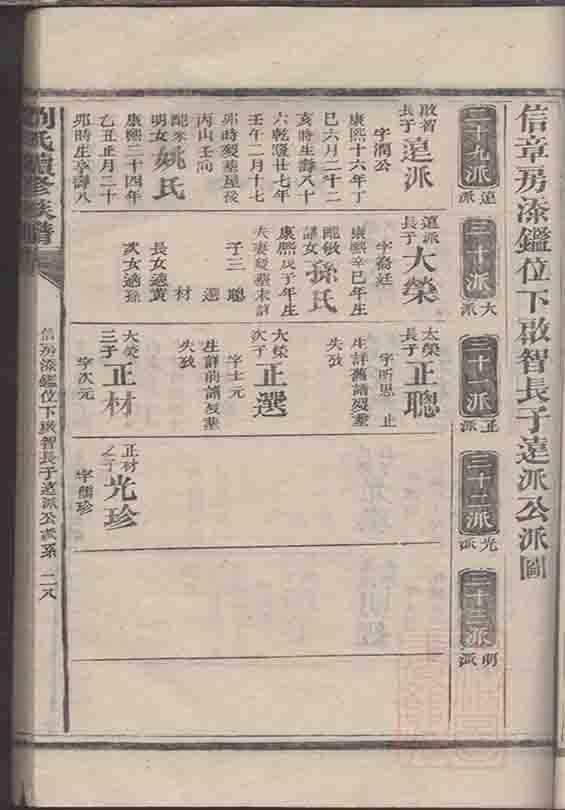 信章房添鑑位下啟智長子遠派公派圖
二十九派
遠派
三十派
大派
三十一派
正派
三十二派
光派
三十三派
明派
啟智長子遠派
字潤公
康熙十六年丁
巳六月二十二
亥時生壽八十
六乾隆廿七年
壬午二月十七
卯時歿塟屋後
丙山壬向
配米姚氏
明女
康熙二十四年
乙丑正月二十
卯時生享壽八
遠派長子大榮
字喬廷
康熙辛巳年生
孫氏
康熙戊子年生
夫妻歿塟未詳
子三 聰
選
材
長女適黃
次女適孫
大榮長子正聰
字所思 止
生詳舊譜歿塟
失攷
大榮次子正選
字士元
生詳前譜歿塟
失攷
大榮三子正材
字次元
正材之子光珍
字儒珍
劉氏續修族譜
信房添鑑位下啟智長子遠派公派系